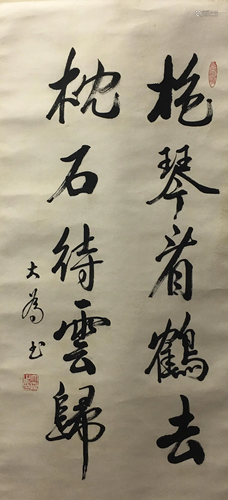 抱琴看鶴去
枕石待雲歸
大為書